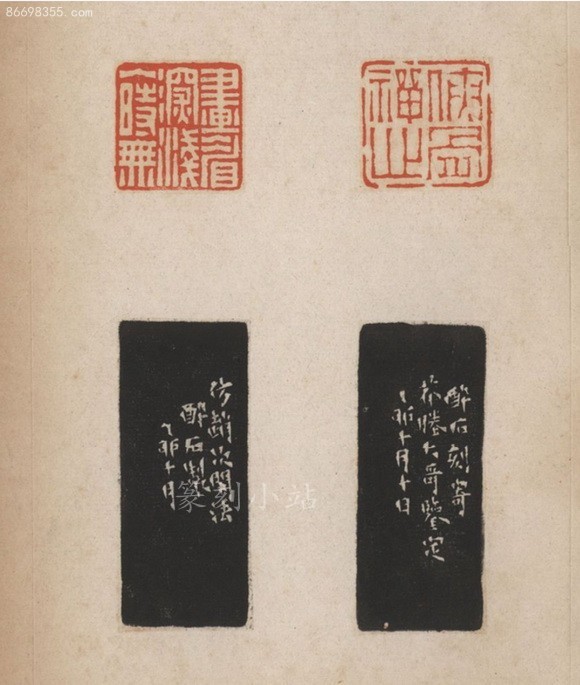 86698355.com
畫眉
深淺
入時無
醉石刻寄
大哥鑒定
乙卯十月十日
仿趙次閑法
醉石製
乙卯十月
篆刻小站